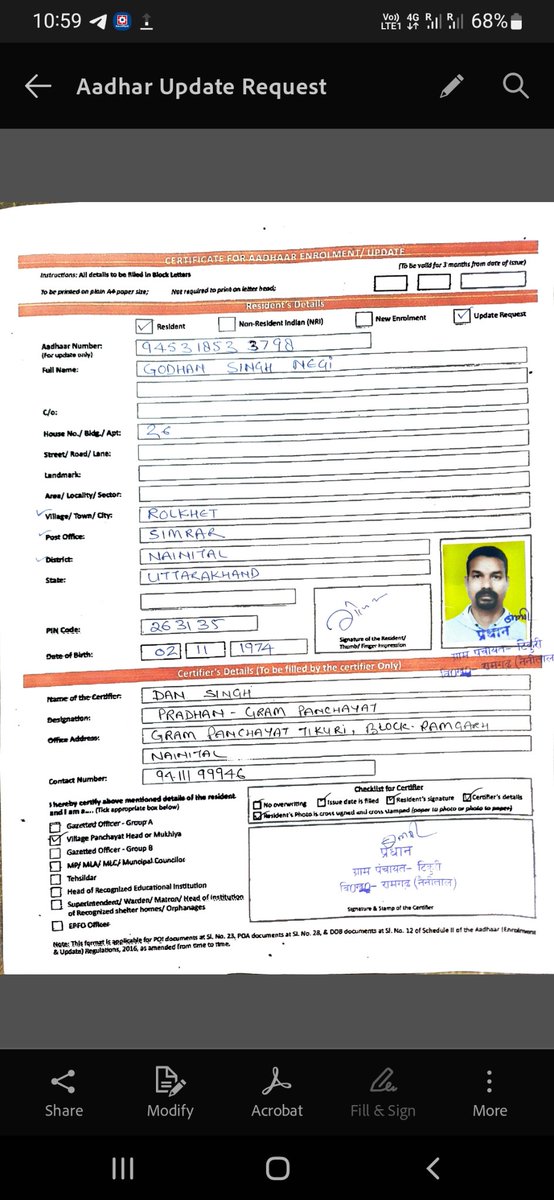 10:59
Vo)) LTE1 4G R R 68%
Aadhar Update Request
CERTIFICATE FOR AADHAAR ENROLMENT/ UPDATE
Instructions: All details to be filled in Block Letters
(To be valid for 3 months from date of issue)
To be printed on plain A4 paper size; Not required to print on letter head;
Resident's Details
Resident Non-Resident Indian (NRI) New Enrolment Update Request
Aadhaar Number: 94531853 3798
(For update only)
Full Name: GODHAN SINGH NEGI
C/o:
House No./ Bldg./ Apt: 36
Street/ Road/ Lane:
Landmark:
Area/ Locality/ Sector:
Village/ Town/ City: ROLKHET
Post Office: SIMRAR
District: NAINITAL
State: UTTARAKHAND
PIN Code: 263135
Signature of the Resident/
Thumb/ Finger Impression
Date of Birth: 02 11 1974
प्रधान
ग्राम पंचायत- टिकुरी
वि०ख०- रामगढ़ (नैनीताल)
Certifier's Details (To be filled by the certifier Only)
Name of the Certifier: DAN SINGH
Designation: PRADHAN - GRAM PANCHAYAT
Office Address: GRAM PANCHAYAT TIKURI, BLOCK-RAMGARH
NAINITAL
Contact Number: 9411199946
I hereby certify above mentioned details of the resident
and I am a.... (Tick appropriate box below)
Gazetted Officer - Group A
Village Panchayat Head or Mukhiya
Gazetted Officer - Group B
MP/ MLA/ MLC/ Muncipal Councilor
Tehsildar
Head of Recognized Educational Institution
Superintendent/ Warden/ Matron/ Head of Institution
of Recognized shelter homes/ Orphanages
EPFO Officer
Checklist for Certifier
No overwriting Issue date is filled Resident's signature Certifier's details
Resident's Photo is cross signed and cross stamped (paper to photo or photo to paper)
प्रधान
ग्राम पंचायत- टिकुरी
वि०ख०- रामगढ़ (नैनीताल)
Signature & Stamp of the Certifier
Note: This format is applicable for POI documents at Sl. No. 23, POA documents at Sl. No. 28, & DOB documents at Sl. No. 12 of Schedule II of the Aadhaar (Enrolment
& Update) Regulations, 2016, as amended from time to time.
Share Modify Acrobat Fill & Sign More